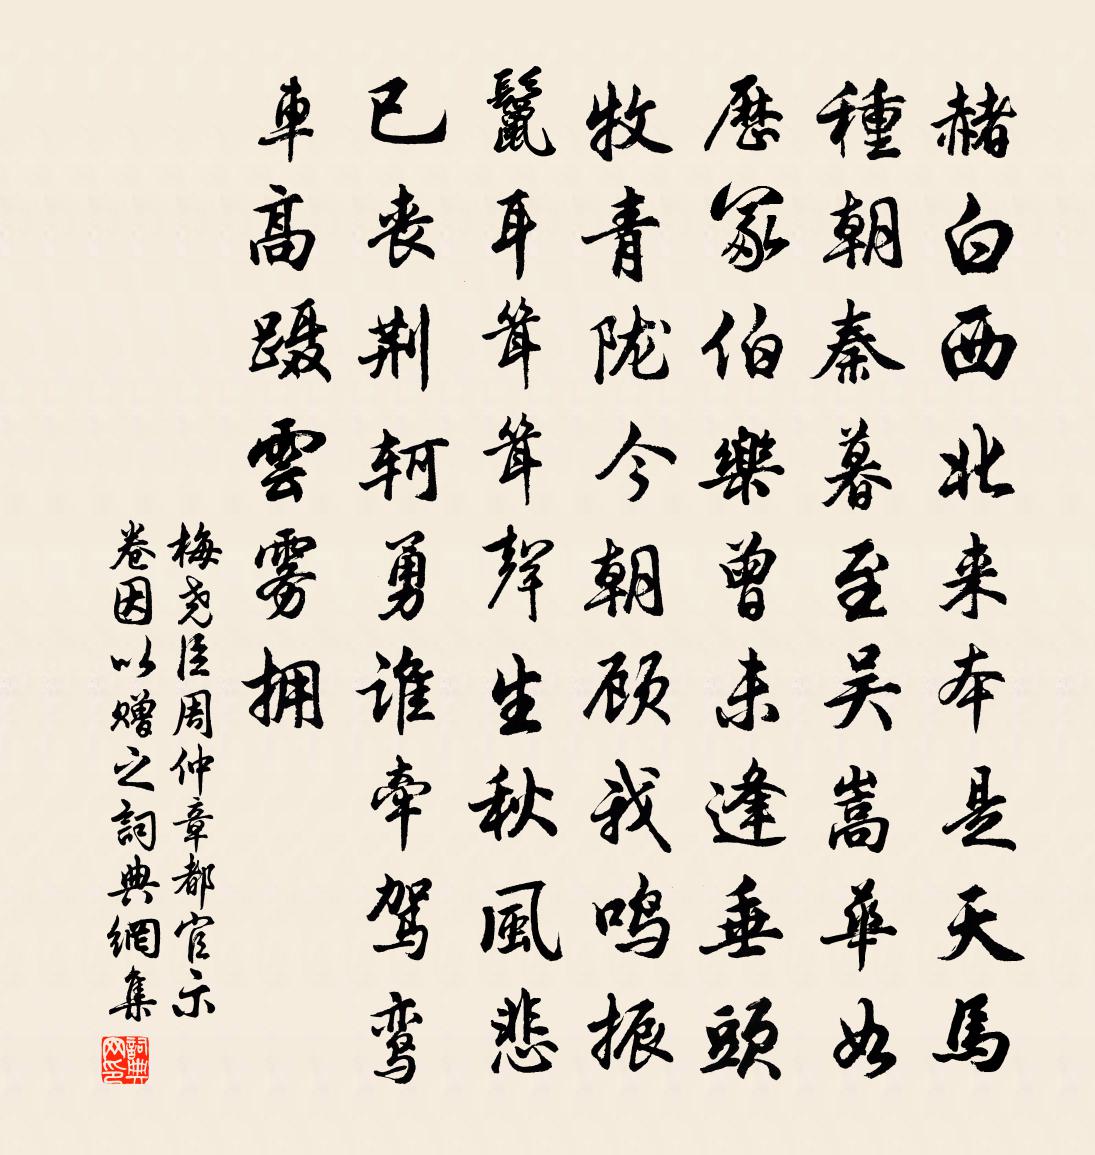 赭白西北来本是天馬
種朝秦暮至吴嵩華如
歷冢伯樂曾未逢垂頭
牧青陇今朝顾我鸣振
鬣耳聳聳聲生秋風悲
已丧荆轲勇谁牵驾鸾
車高蹑雲雾拥
梅尧臣周仲章都官示
卷因以赠之詞典網集
詞典网印